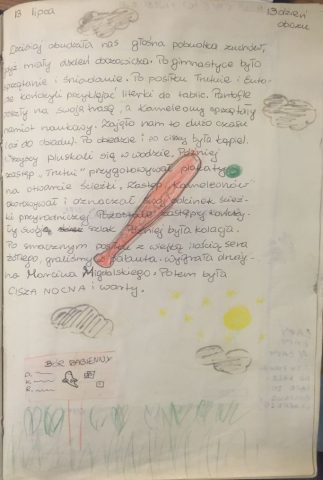 13 lipca
13 dzień
obozu
Dzisiaj obudziła nas głośna pobudka zuchów,
gdyż mały dzień
Po gimnastyce było
sprzątanie i śniadanie. Po posiłku Trutnie i
kończyli przyklejać literki do tablic. Pantofle
poszły na swoją trasę, a kameleony sprzątały
namiot naukowy. Zajęło nam to dużo czasu
(aż do obiadu). Po obiedzie i po ciszy była kąpiel.
Wszyscy pluskali się w wodzie. Później
zastęp „Trutni" przygotowywał plakaty
na otwarcie ścieżki. Zastęp kameleonów
i oznaczał swój odcinek ścież-
ki przyrodniczej. Pozostałe zastępy
ły swój szlak. Później była kolacja.
Po smacznym posiłku z wielką ilością sera
żółtego, graliśmy w palanta. Wygrała druży-
na Marcina Migdalskiego. Potem była
CISZA NOCNA i warty.
BÓR BABIENNY
D.
K.
R.